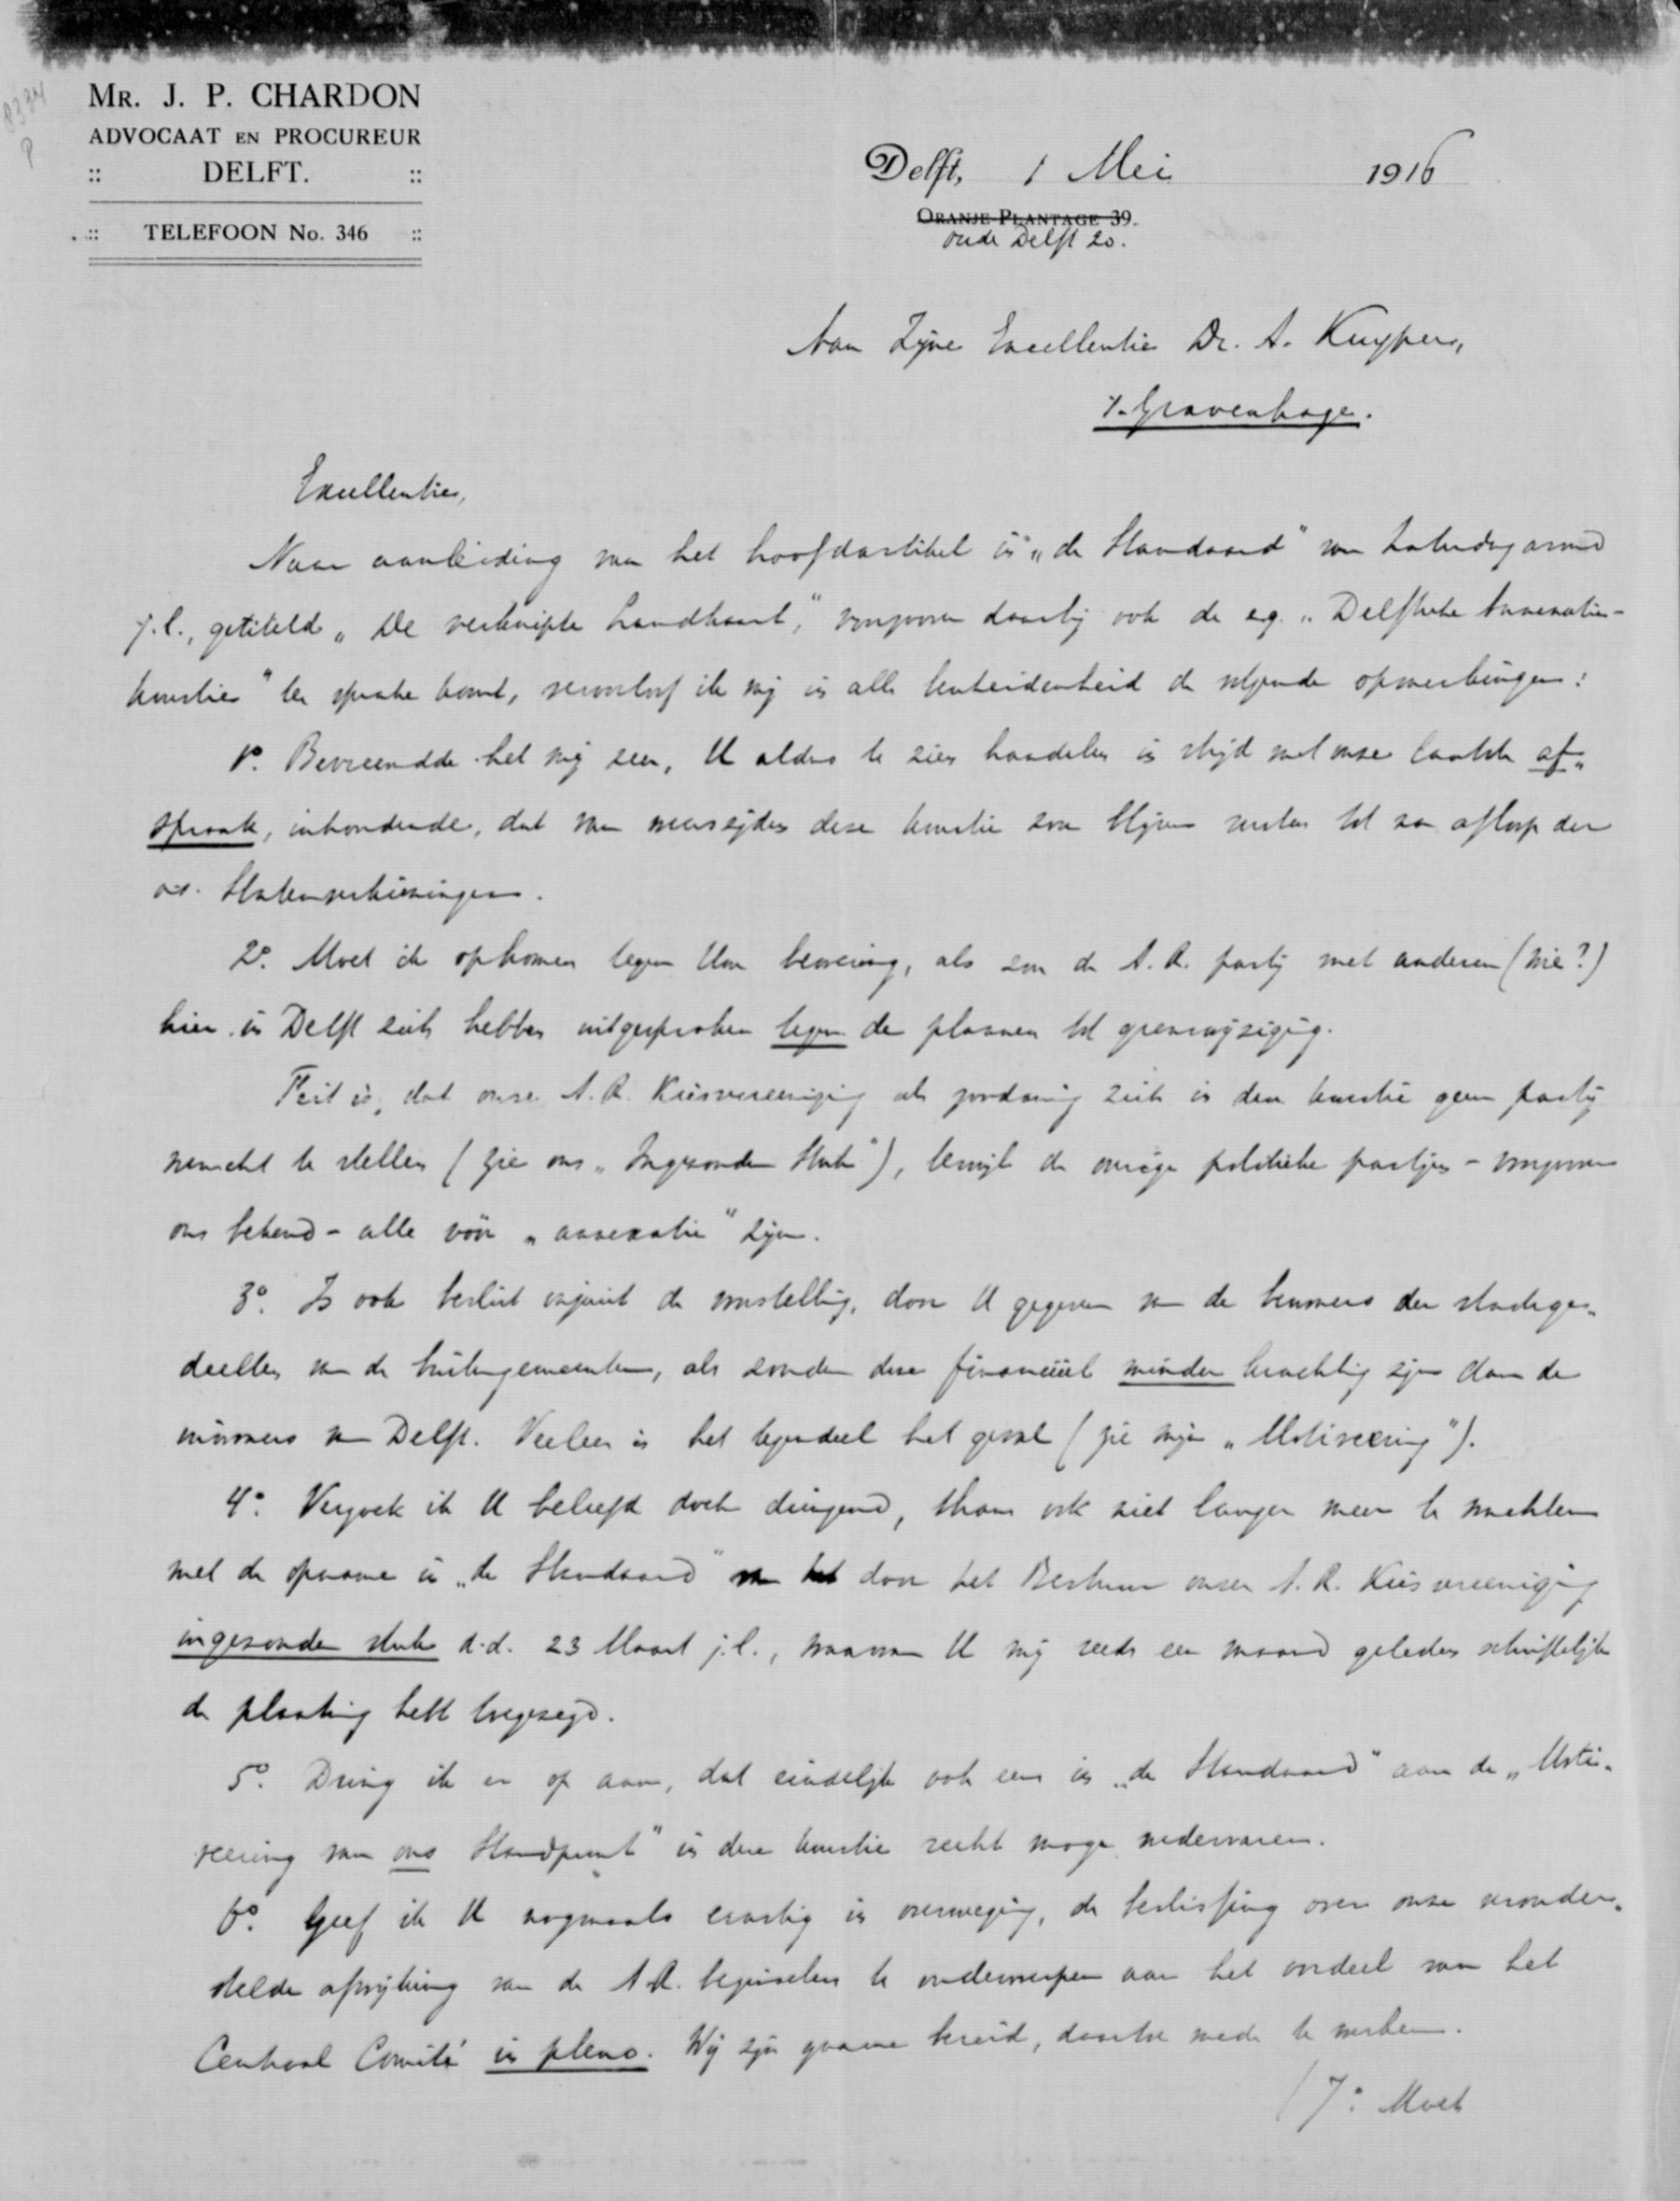 MR. J. P. CHARDON
ADVOCAAT EN PROCUREUR
:: DELFT. ::
:: TELEFOON No. 346 ::
Delft, 1 Mei 1916
ORANJE-PLANTAGE 39.
Oude Delft 20.
Aan Zijne Excellentie Dr. A. Kuyper,
's-Gravenhage.
Excellentie,
Naar aanleiding van het hoofdartikel in "de Standaard" van Zaterdagavond
j.l., getiteld "De verknipte Landkaart," voorzoover daarbij ook de z.g. "Delftsche Annexatie-
kwestie" ter sprake komt, veroorloof ik mij in alle bescheidenheid de volgende opmerkingen:
1o. Bevreemdde het mij zeer, U aldus te zien handelen in strijd met onze laatste af-
spraak, inhoudende, dat van weerszijden deze kwestie zou blijven rusten tot na afloop der
a.s. Statenverkiezingen.
2o. Moet ik opkomen tegen Uw bewering, als zou de A.R. partij met anderen (wie?)
hier in Delft zich hebben uitgesproken tegen de plannen tot grenswijziging.
Feit is, dat onze A.R. Kiesvereeniging als zoodanig zich in deze kwestie geen partij
wenscht te stellen (zie ons "Ingezonden Stuk"), terwijl de overige politieke partijen - voorzoover
ons bekend - alle vóór "annexatie" zijn.
3o. Is ook beslist onjuist de voorstelling, door U gegeven van de bewoners der stadsge-
deelten van de buitengemeenten, als zouden deze financiëel minder krachtig zijn dan de
inwoners van Delft. Veeleer is het tegendeel het geval (zie mijn "Motiveering").
4o. Verzoek ik U beleefd doch dringend, thans ook niet langer meer te wachten
met de opname in "de Standaard" van het door het Bestuur onzer A.R. Kiesvereeniging
ingezonden stuk d.d. 23 Maart j.l., waarvan U mij reeds een maand geleden schriftelijk
de plaatsing hebt toegezegd.
5o. Dring ik er op aan, dat eindelijk ook eens in "de Standaard" aan de "Moti-
veering van ons Standpunt" in deze kwestie recht moge wedervaren.
6o. Geef ik U nogmaals ernstig in overweging, de beslissing over onze veronder-
stelde afwijking van de A.R. beginselen te onderwerpen aan het oordeel van het
Centraal Comité in pleno. Wij zijn gaarne bereid, daartoe mede te werken.
/ 7o. Moet